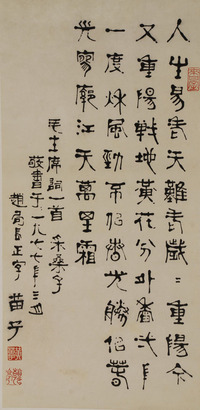 人生易老天難老歲〻重陽今
又重陽戰地黃花分外香弌年
一度秋風勁不佀春光勝佀春
光寥廓江天萬里霜
毛主席詞一首 采桑子
敬書于一九七七年三月
趙局長正字 苗子